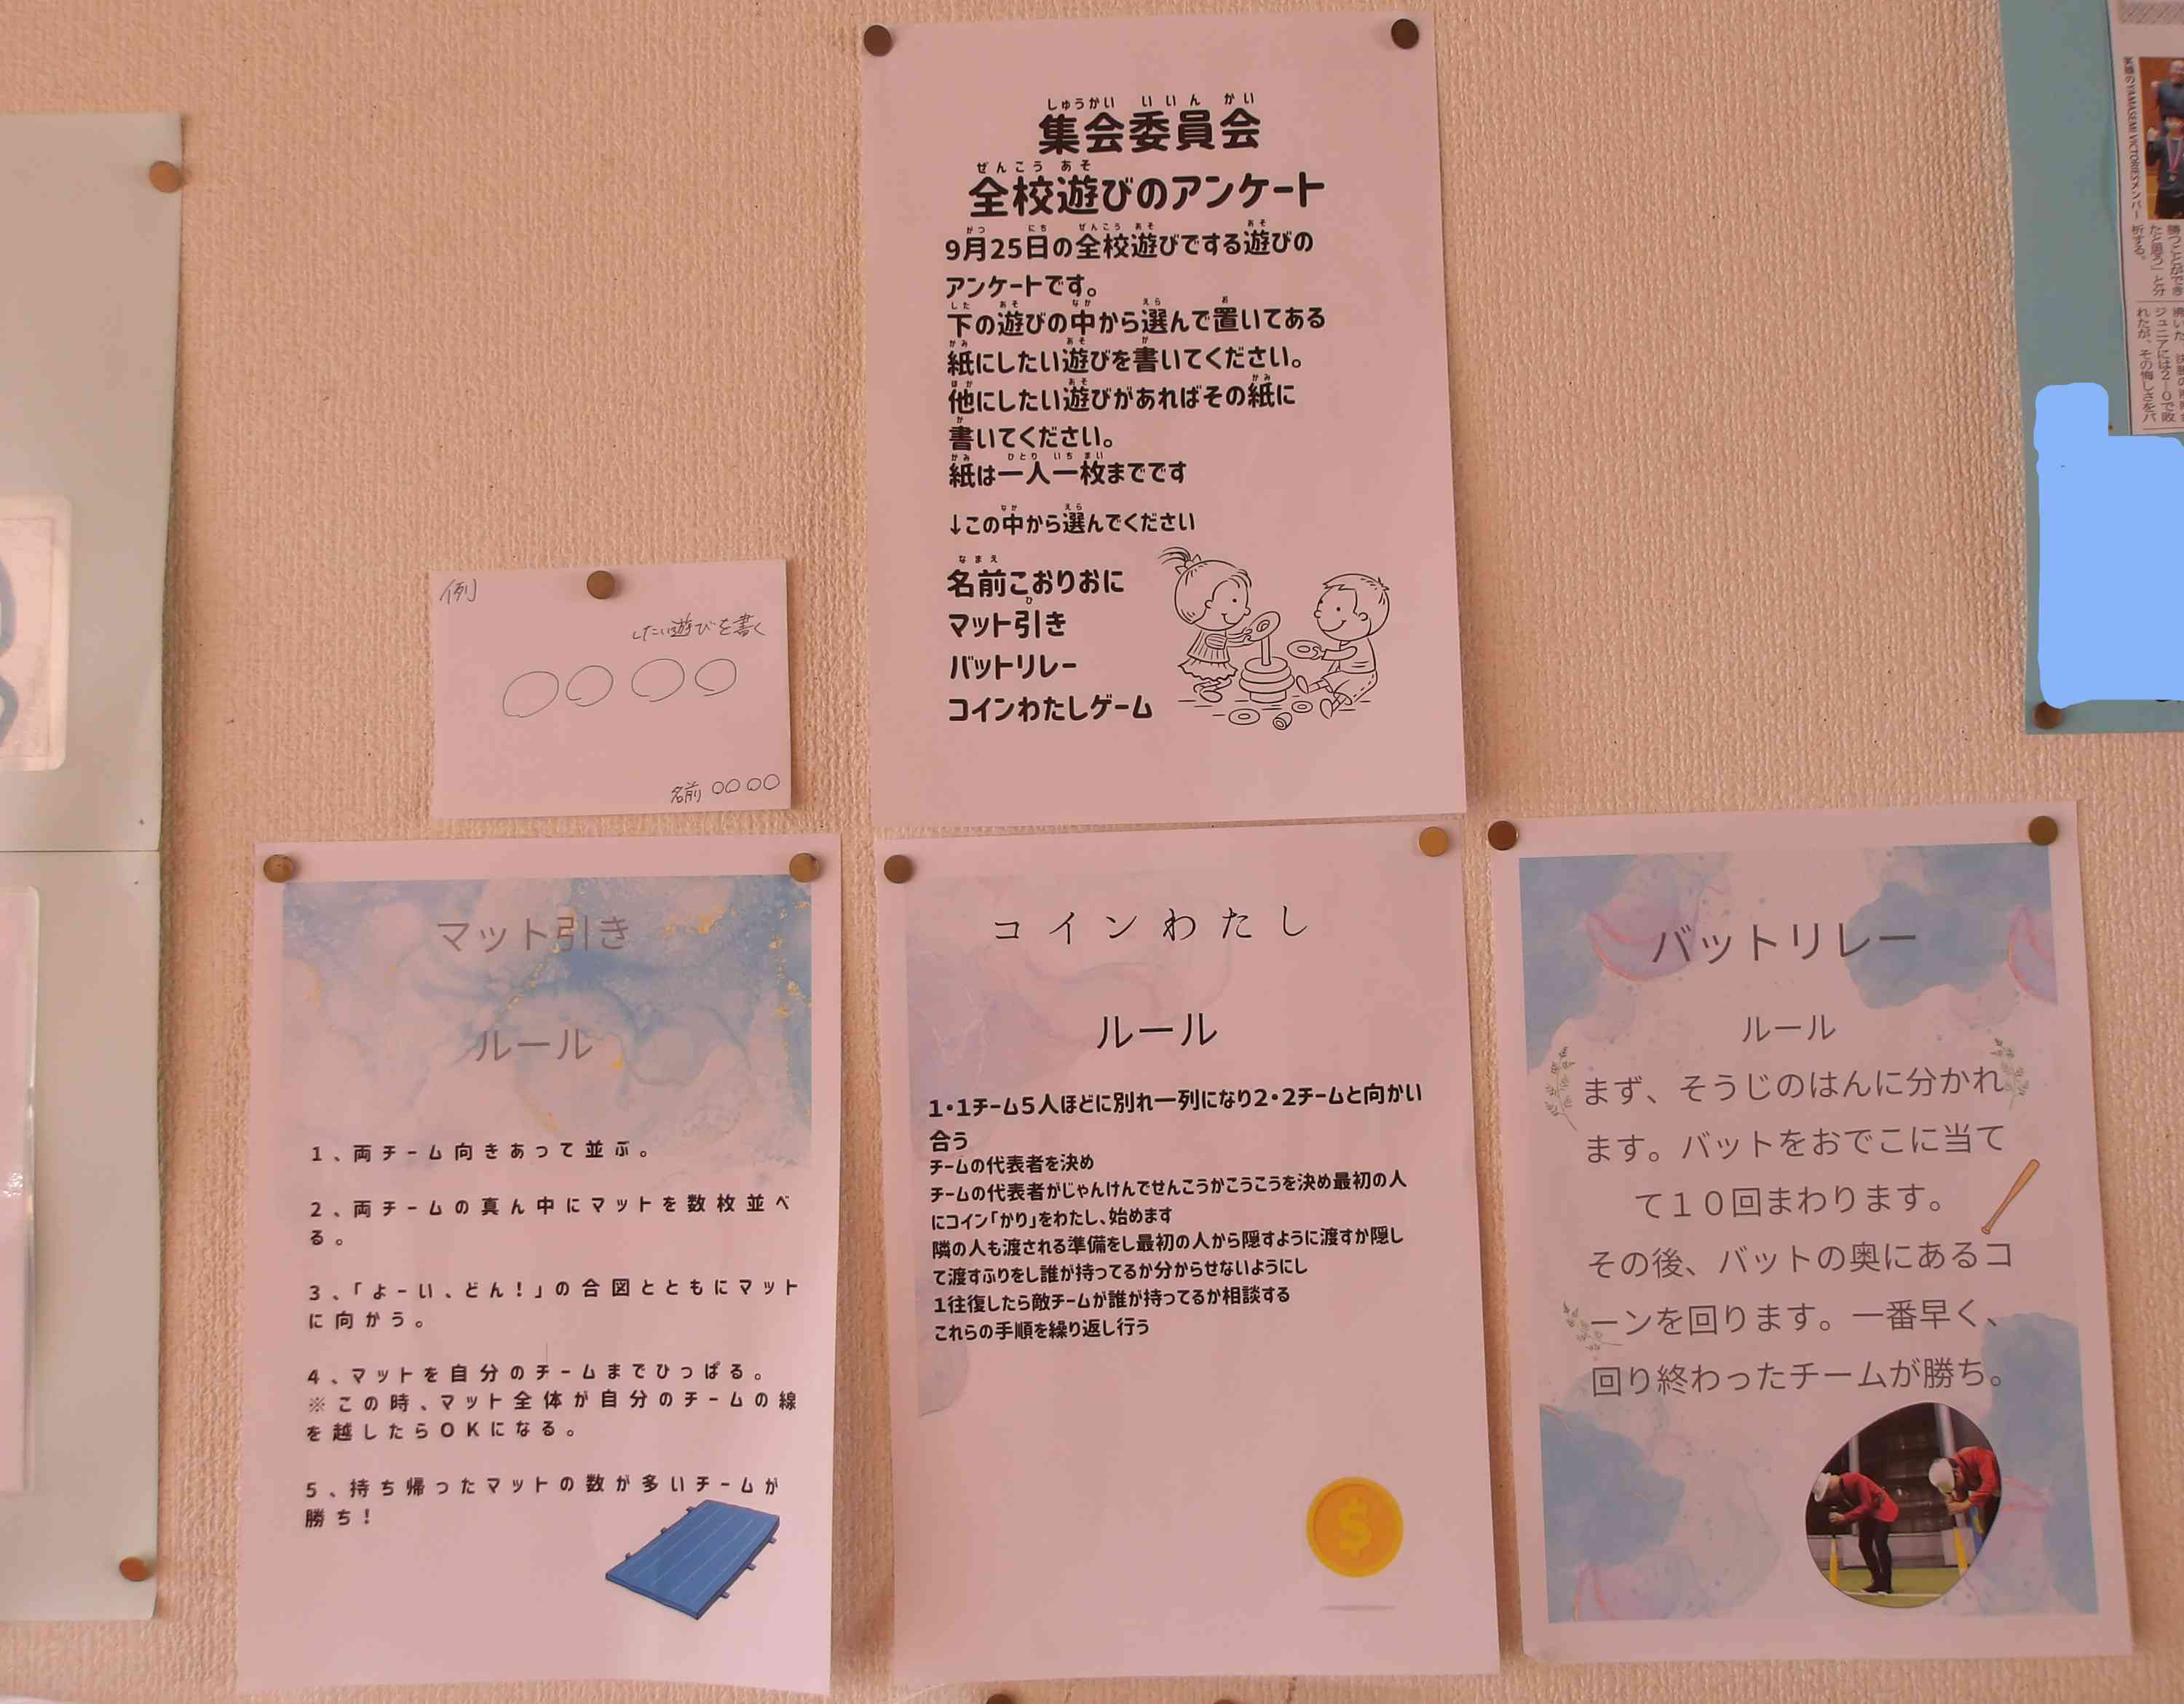 しゅうかい いいん かい
集会委員会
ぜんこう あそ
全校遊びのアンケート
がつ にち ぜんこう あそ あそ
9月25日の全校遊びでする遊びの
アンケートです。
した あそ なか えら お
下の遊びの中から選んで置いてある
かみ あそ か
紙にしたい遊びを書いてください。
ほか あそ かみ
他にしたい遊びがあればその紙に
か
書いてください。
かみ ひとり いち まい
紙は一人一枚までです
なか えら
↓この中から選んでください
なまえ
名前こおりおに
ひ
マット引き
バットリレー
コインわたしゲーム
例
したい遊びを書く
○○○○
名前 ○○○○
マット引き
ルール
1、両チーム向きあって並ぶ。
2、両チームの真ん中にマットを数枚並べ
る。
3、「よーい、どん!」の合図とともにマット
に向かう。
4、マットを自分のチームまでひっぱる。
※この時、マット全体が自分のチームの線
を越したらOKになる。
5、持ち帰ったマットの数が多いチームが
勝ち!
コインわたし
ルール
1・1チーム5人ほどに別れ一列になり2・2チームと向かい
合う
チームの代表者を決め
チームの代表者がじゃんけんでせんこうかこうこうを決め最初の人
にコイン「かり」をわたし、始めます
隣の人も渡される準備をし最初の人から隠すように渡すか隠し
て渡すふりをし誰が持ってるか分からせないようにし
1往復したら敵チームが誰が持ってるか相談する
これらの手順を繰り返し行う
バットリレー
ルール
まず、そうじのはんに分かれ
ます。バットをおでこに当て
て10回まわります。
その後、バットの奥にあるコ
ーンを回ります。一番早く、
回り終わったチームが勝ち。
YAMASEMI VICTORIESメンバー
たと思う」と分
析する。
ジュニアには2―0で敗
れたが、その悔しさをバ